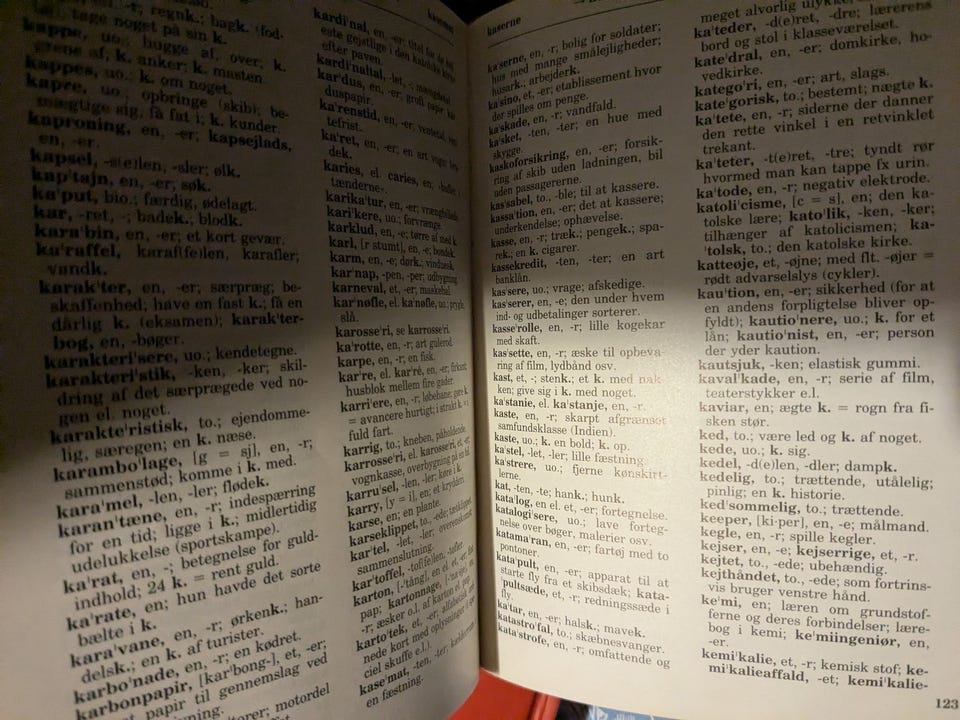 -r; regnk.; bagk. (fod-
tage noget på sin k.
kappe, uo.; hugge af, over; k.
grene af; k. anker; k. masten.
kappes, uo.; k. om noget.
kapre, uo.; opbringe (skib); be-
mægtige sig, få fat i; k. kunder.
kaproning, en, -er; kapsejlads,
en, -er.
kapsel, -s(e)len, -sler; ølk.
kap'tajn, en, -er; søk.
ka'put, bio.; færdig, ødelagt.
kar, -ret, -; badek.; blodk.
kara'bin, en, -er; et kort gevær.
ka'raffel, karaf(fe)len, karafler;
vandk.
karak'ter, en, -er; særpræg; be-
skaffenhed; have en fast k.; få en
dårlig k. (eksamen); karak'ter-
bog, en, -bøger.
karakteri'sere, uo.; kendetegne.
karakteri'stik, -ken, -ker; skil-
dring af det særprægede ved no-
gen el. noget.
karakte'ristisk, to.; ejendomme-
lig, særegen; en k. næse.
karambo'lage, [g = sj], en, -r;
sammenstød; komme i k. med.
kara'mel, -len, -ler; flødek.
karan'tæne, en, -r; indespærring
for en tid; ligge i k.; midlertidig
udelukkelse (sportskampe).
ka'rat, en, -; betegnelse for guld-
indhold; 24 k. = rent guld.
ka'rate, en; hun havde det sorte
bælte i k.
kara'vane, en, -r; ørkenk.; han-
delsk.; en k. af turister.
karbo'nade, en, -r; en kødret.
karbonpapir, [kar'bong-], et, -er;
papir til gennemslag ved
motordel
kardi'nal, en, -er; titel for de høj
este gejstlige i den katolske kirke
efter paven.
kardi'naltal, -let, -; mængdetal
kar'dus, en, -er; groft papir
duspapir.
ka'renstid, en, -er; ventetid, ven
tefrist.
ka'ret, en, -er; en art vogn;
dek.
karies, el. caries, en; »huller i
tænderne«.
karika'tur, en, -er; vrængbillede
kari'kere, uo.; forvrænge.
karklud, en, -e; tørre af med k.
karl, [r stumt], en, -e; bondek.
karm, en, -e; dørk.; vinduesk.
kar'nap, -pen, -per; udbygning
karneval, et, -er; maskebal.
kar'nøfle, el. ka'nøfle, uo.; prygle,
slå.
karosse'ri, se karrosse'ri.
ka'rotte, en, -r; art gulerod.
karpe, en, -r; en fisk.
kar're, el. karré, en, -er; firkant
husblok mellem fire gader.
karri'ere, en, -r; løbebane; gøre k.
= avancere hurtigt; i strakt k. =
fuld fart.
karrig, to.; kneben, påholdende.
karrosse'ri, el. karosse'ri, et, -er;
vognkasse, overbygning på en bil.
karru'sel, -len, -ler; køre i k.
karry, [y = i], en; et krydderi.
karse, en; en plante.
karseklippet, to., -ede; tætklippet.
kar'tel, -let, -ler; overenskomst
sammenslutning.
kar'toffel, -tof(fe)len, -tofler.
karton, [-tång], en el. et, -er;
pap; kartonnage,
-r; æsker o.l. af karton el. pap
karto'tek, et, -er; alfabetisk ord
nede kort med oplysninger
ciel skuffe e.l.).
kase'mat, -ten, -ter;
en fæstning.
kaserne
ka'serne, en, -r; bolig for soldater;
hus med mange smålejligheder;
husark.; arbejderk.
ka'sino, et, -er; etablissement hvor
der spilles om penge.
ka'skade, en, -r; vandfald.
ka'sket, -ten, -ter; en hue med
skygge.
kaskoforsikring, en, -er; forsik-
ring af skib uden ladningen, bil
uden passagererne.
ka'sabel, to., -ble; til at kassere.
kassa'tion, en, -er; det at kassere;
underkendelse; ophævelse.
kasse, en, -r; træk.; pengek.; spa-
rek.; en k. cigarer.
kassekredit, -ten, -ter; en art
banklån.
kas'sere, uo.; vrage; afskedige.
kas'serer, en, -e; den under hvem
ind- og udbetalinger sorterer.
kasse'rolle, en, -r; lille kogekar
med skaft.
kas'sette, en, -r; æske til opbeva-
ring af film, lydbånd osv.
kast, et, -; stenk.; et k. med nak-
ken; give sig i k. med noget.
ka'stanie, el. ka'stanje, en, -r.
kaste, en, -r; skarpt afgrænset
samfundsklasse (Indien).
kaste, uo.; k. en bold; k. op.
ka'stel, -let, -ler; lille fæstning.
ka'strere, uo.; fjerne kønskirt-
lerne.
kat, -ten, -te; hank.; hunk.
kata'log, en el. et, -er; fortegnelse.
katalogi'sere, uo.; lave forteg-
nelse over bøger, malerier osv.
katama'ran, en, -er; fartøj med to
pontoner.
kata'pult, en, -er; apparat til at
starte fly fra et skibsdæk; kata-
'pultsæde, et, -r; redningssæde i
fly.
ka'tar, en, -er; halsk.; mavek.
katastro'fal, to.; skæbnesvanger.
kata'strofe, en, -r; omfattende og
meget alvorlig ulykke
ka'teder, -d(e)ret, -dre; lærerens
bord og stol i klasseværelset.
kate'dral, en, -er; domkirke, ho-
vedkirke.
katego'ri, en, -er; art, slags.
kate'gorisk, to.; bestemt; nægte k.
ka'tete, en, -r; siderne der danner
den rette vinkel i en retvinklet
trekant.
ka'teter, -t(e)ret, -tre; tyndt rør
hvormed man kan tappe fx urin.
ka'tode, en, -r; negativ elektrode.
katoli'cisme, [c = s], en; den ka-
tolske lære; kato'lik, -ken, -ker;
tilhænger af katolicismen; ka-
'tolsk, to.; den katolske kirke.
katteøje, et, -øjne; med flt. -øjer =
rødt advarselslys (cykler).
kau'tion, en, -er; sikkerhed (for at
en andens forpligtelse bliver op-
fyldt); kautio'nere, uo.; k. for et
lån; kautio'nist, en, -er; person
der yder kaution.
kautsjuk, -ken; elastisk gummi.
kaval'kade, en, -r; serie af film,
teaterstykker e.l.
kaviar, en; ægte k. = rogn fra fi-
sken stør.
ked, to.; være led og k. af noget.
kede, uo.; k. sig.
kedel, -d(e)len, -dler; dampk.
kedelig, to.; trættende, utålelig;
pinlig; en k. historie.
ked'sommelig, to.; trættende.
keeper, [ki·per], en, -e; målmand.
kegle, en, -r; spille kegler.
kejser, en, -e; kejserrige, et, -r.
kejtet, to., -ede; ubehændig.
kejthåndet, to., -ede; som fortrins-
vis bruger venstre hånd.
ke'mi, en; læren om grundstof-
ferne og deres forbindelser; lære-
bog i kemi; ke'miingeniør, en,
-er.
kemi'kalie, et, -r; kemisk stof; ke-
mi'kalieaffald, -et; kemi'kalie-
123